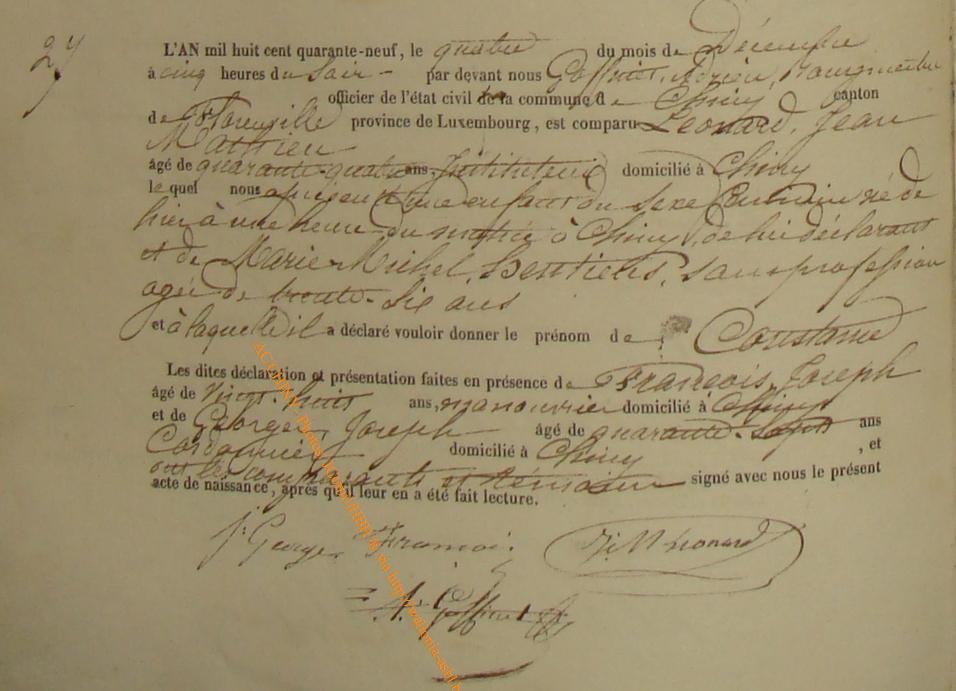 27
L'AN mil huit cent quarante-neuf, le quatre du mois de Décembre
à cinq heures du Soir - par devant nous Goffinet, Adrien, Bourgmestre
officier de l'état civil de la commune de Chiny canton
de Florenville province de Luxembourg, est comparu Léonard, Jean
Mathieu
âgé de quarante-quatre ans, Instituteur domicilié à Chiny
lequel nous a présenté une enfant du sexe féminin né de
hier à une heure du matin à Chiny, de lui déclarant
et de Marie Michel, sans profession
agée de trente-six ans
et à laquelle il a déclaré vouloir donner le prénom de Constance
Les dites déclaration et présentation faites en présence de François, Joseph
âgé de vingt-huit ans, manouvrier domicilié à Chiny
et de Georges, Joseph âgé de quarante-sept ans
Cordonnier domicilié à Chiny, et
ont les comparants et témoins signé avec nous le présent
acte de naissance, après qu'il leur en a été fait lecture.
J. Georges François. J. M Léonard
A. Goffinet